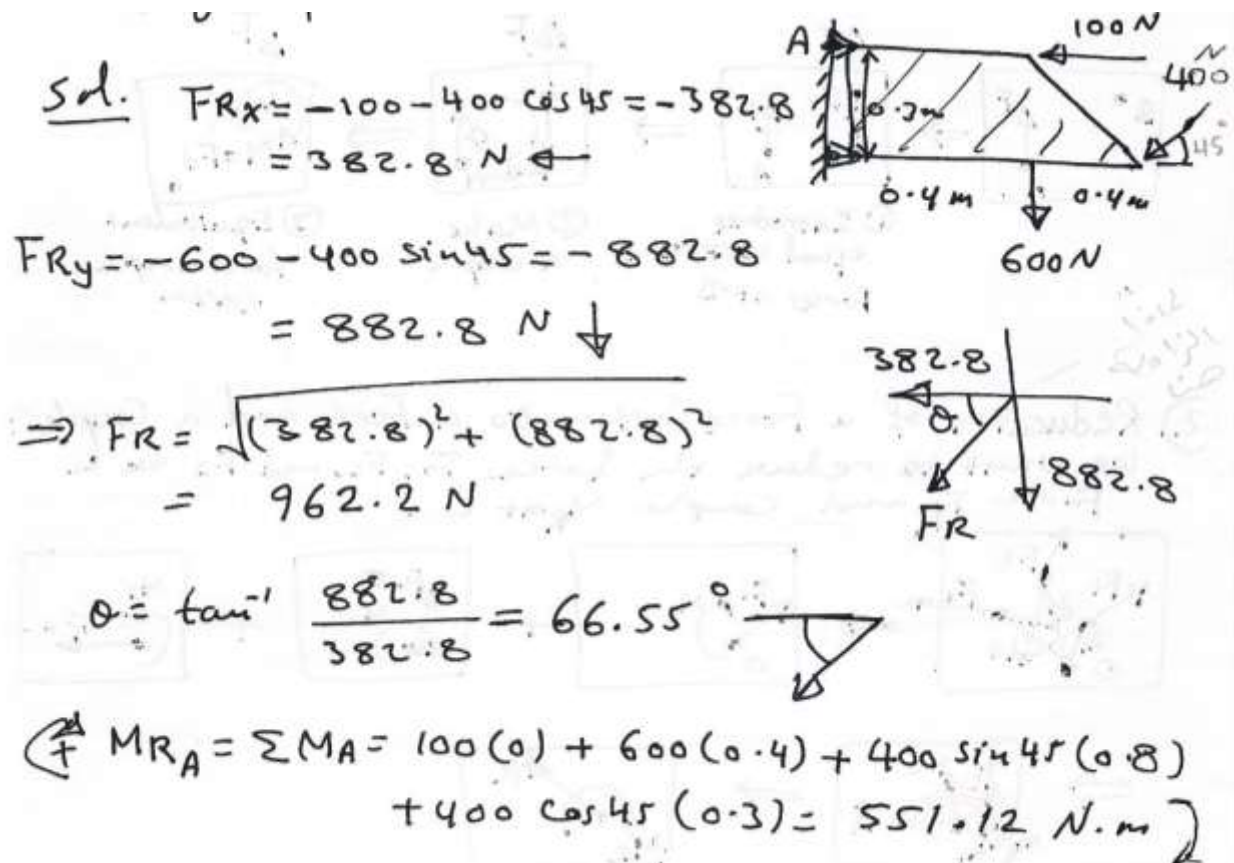 Sol. FRx = -100 - 400 cos 45 = -382.8
= 382.8 N ←
A
100 N
400 N
45
0.3m
0.4 m
0.4 m
600 N
FRy = -600 - 400 sin 45 = -882.8
= 882.8 N ↓
⇒ FR = √(382.8)² + (882.8)²
= 962.2 N
382.8
θ
882.8
FR
θ = tan⁻¹ 882.8 / 382.8 = 66.55°
+ MRA = ΣMA = 100(0) + 600(0.4) + 400 sin 45 (0.8)
+ 400 cos 45 (0.3) = 551.12 N.m